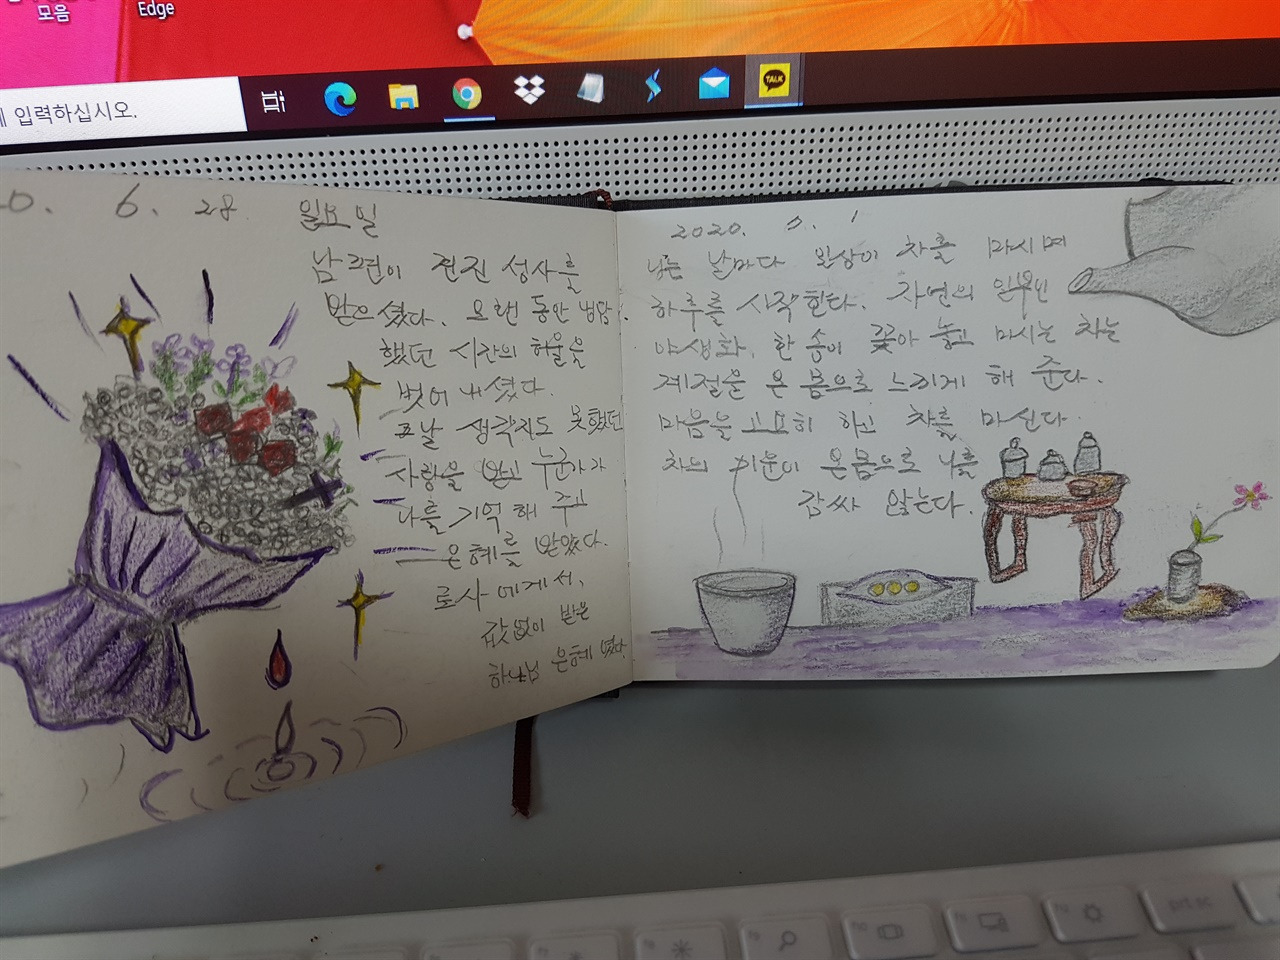 모음
Edge
입력하십시오.
TALK
0. 6. 28 일요일
남편이 견진 성사를
받으셨다. 오랜 동안 냉담
했던 시간의 허울을
벗어 내셨다.
생각지도 못했던
사랑을 받고 누군가가
나를 기억해 주고
은혜를 받았다.
로사에게서,
값없이 받은
하나님 은혜였다.
2020. 1
나는 날마다 일상이 차를 마시며
하루를 시작한다. 자연의 일부인
야생화, 한 송이 꽃아 놓고 마시는 차는
계절을 온 몸으로 느끼게 해 준다.
마음을 고요히 하고 차를 마신다.
차의 기운이 온몸으로 나를
감싸 않는다.
prt sc